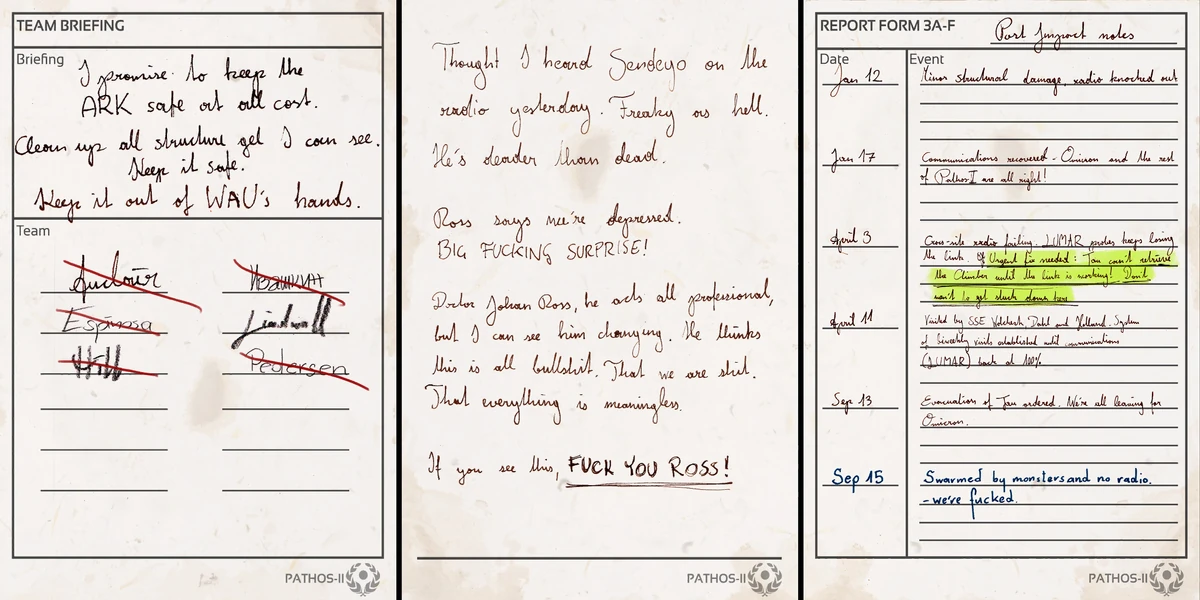 TEAM BRIEFING
Briefing
I promise to keep the
ARK safe at all cost.
Clean up all structure gel I can see.
Keep it safe.
Keep it out of WAU's hands.
Team
Auclair
Espinosa
Hill
Lindwall
Pedersen
PATHOS-II
Thought I heard Sendeyo on the
radio yesterday. Freaky as hell.
He's deader than dead.
Ross says we're depressed.
BIG FUCKING SURPRISE!
Doctor Johan Ross, he acts all professional,
but I can see him changing. He thinks
this is all bullshit. That we are shit.
That everything is meaningless.
If you see this, FUCK YOU ROSS!
PATHOS-II
REPORT FORM 3A-F
Post Impact notes
Date
Event
Jan 12
Minor structural damage, radio knocked out
Jan 17
Communications recovered - Omicron and the rest
of Pathos II are all right!
April 3
Cross-site radio failing. LUMAR probes keeps losing
the link. Urgent fix needed: Tau can't retrieve
the Climber until the link is working! Don't
want to get stuck down here
April 11
Visited by SSE Wolchezk, Dahl and Holland. System
of biweekly visits established until communications
(LUMAR) back at 100%
Sep 13
Evacuation of Tau ordered. We're all leaving for
Omicron.
Sep 15
Swarmed by monsters and no radio.
- we're fucked.
PATHOS-II